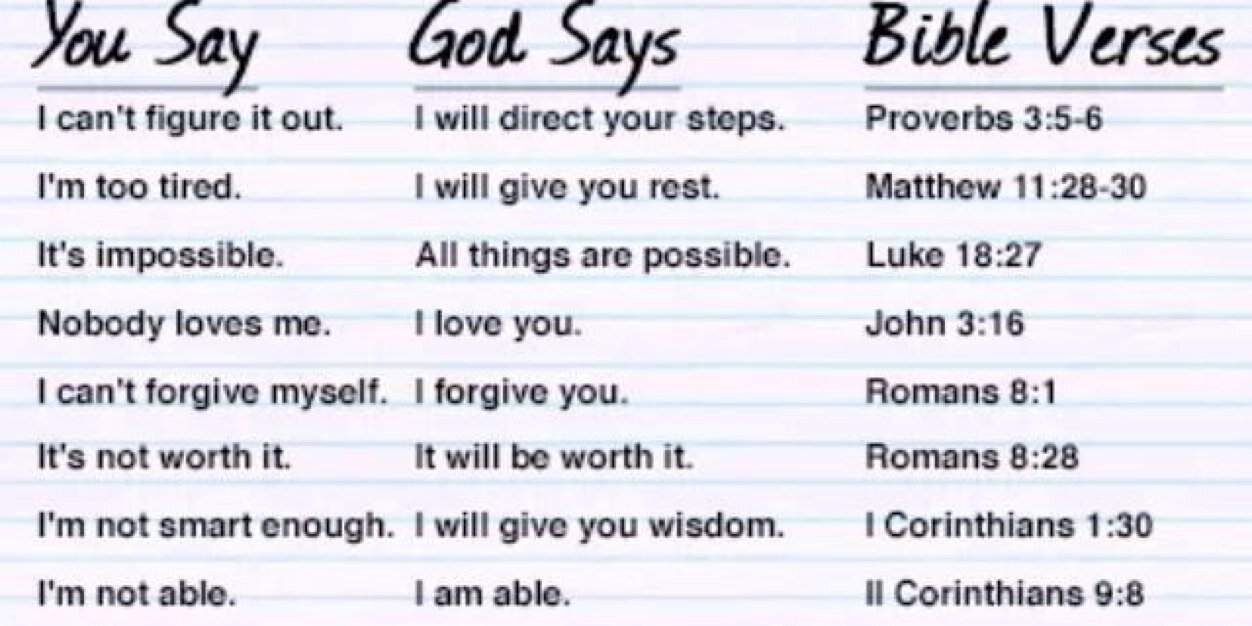 You Say God Says Bible Verses
I can't figure it out. I will direct your steps. Proverbs 3:5-6
I'm too tired. I will give you rest. Matthew 11:28-30
It's impossible. All things are possible. Luke 18:27
Nobody loves me. I love you. John 3:16
I can't forgive myself. I forgive you. Romans 8:1
It's not worth it. It will be worth it. Romans 8:28
I'm not smart enough. I will give you wisdom. I Corinthians 1:30
I'm not able. I am able. II Corinthians 9:8